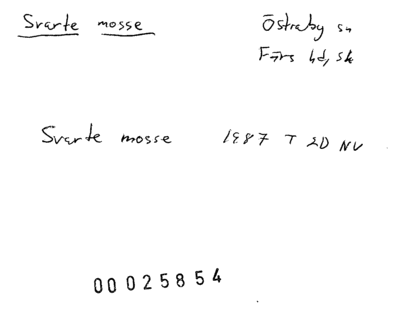 Svarte mosse
Östraby sn
Färs hd, sk
Svarte mosse 1987 T 2D NV
00025854